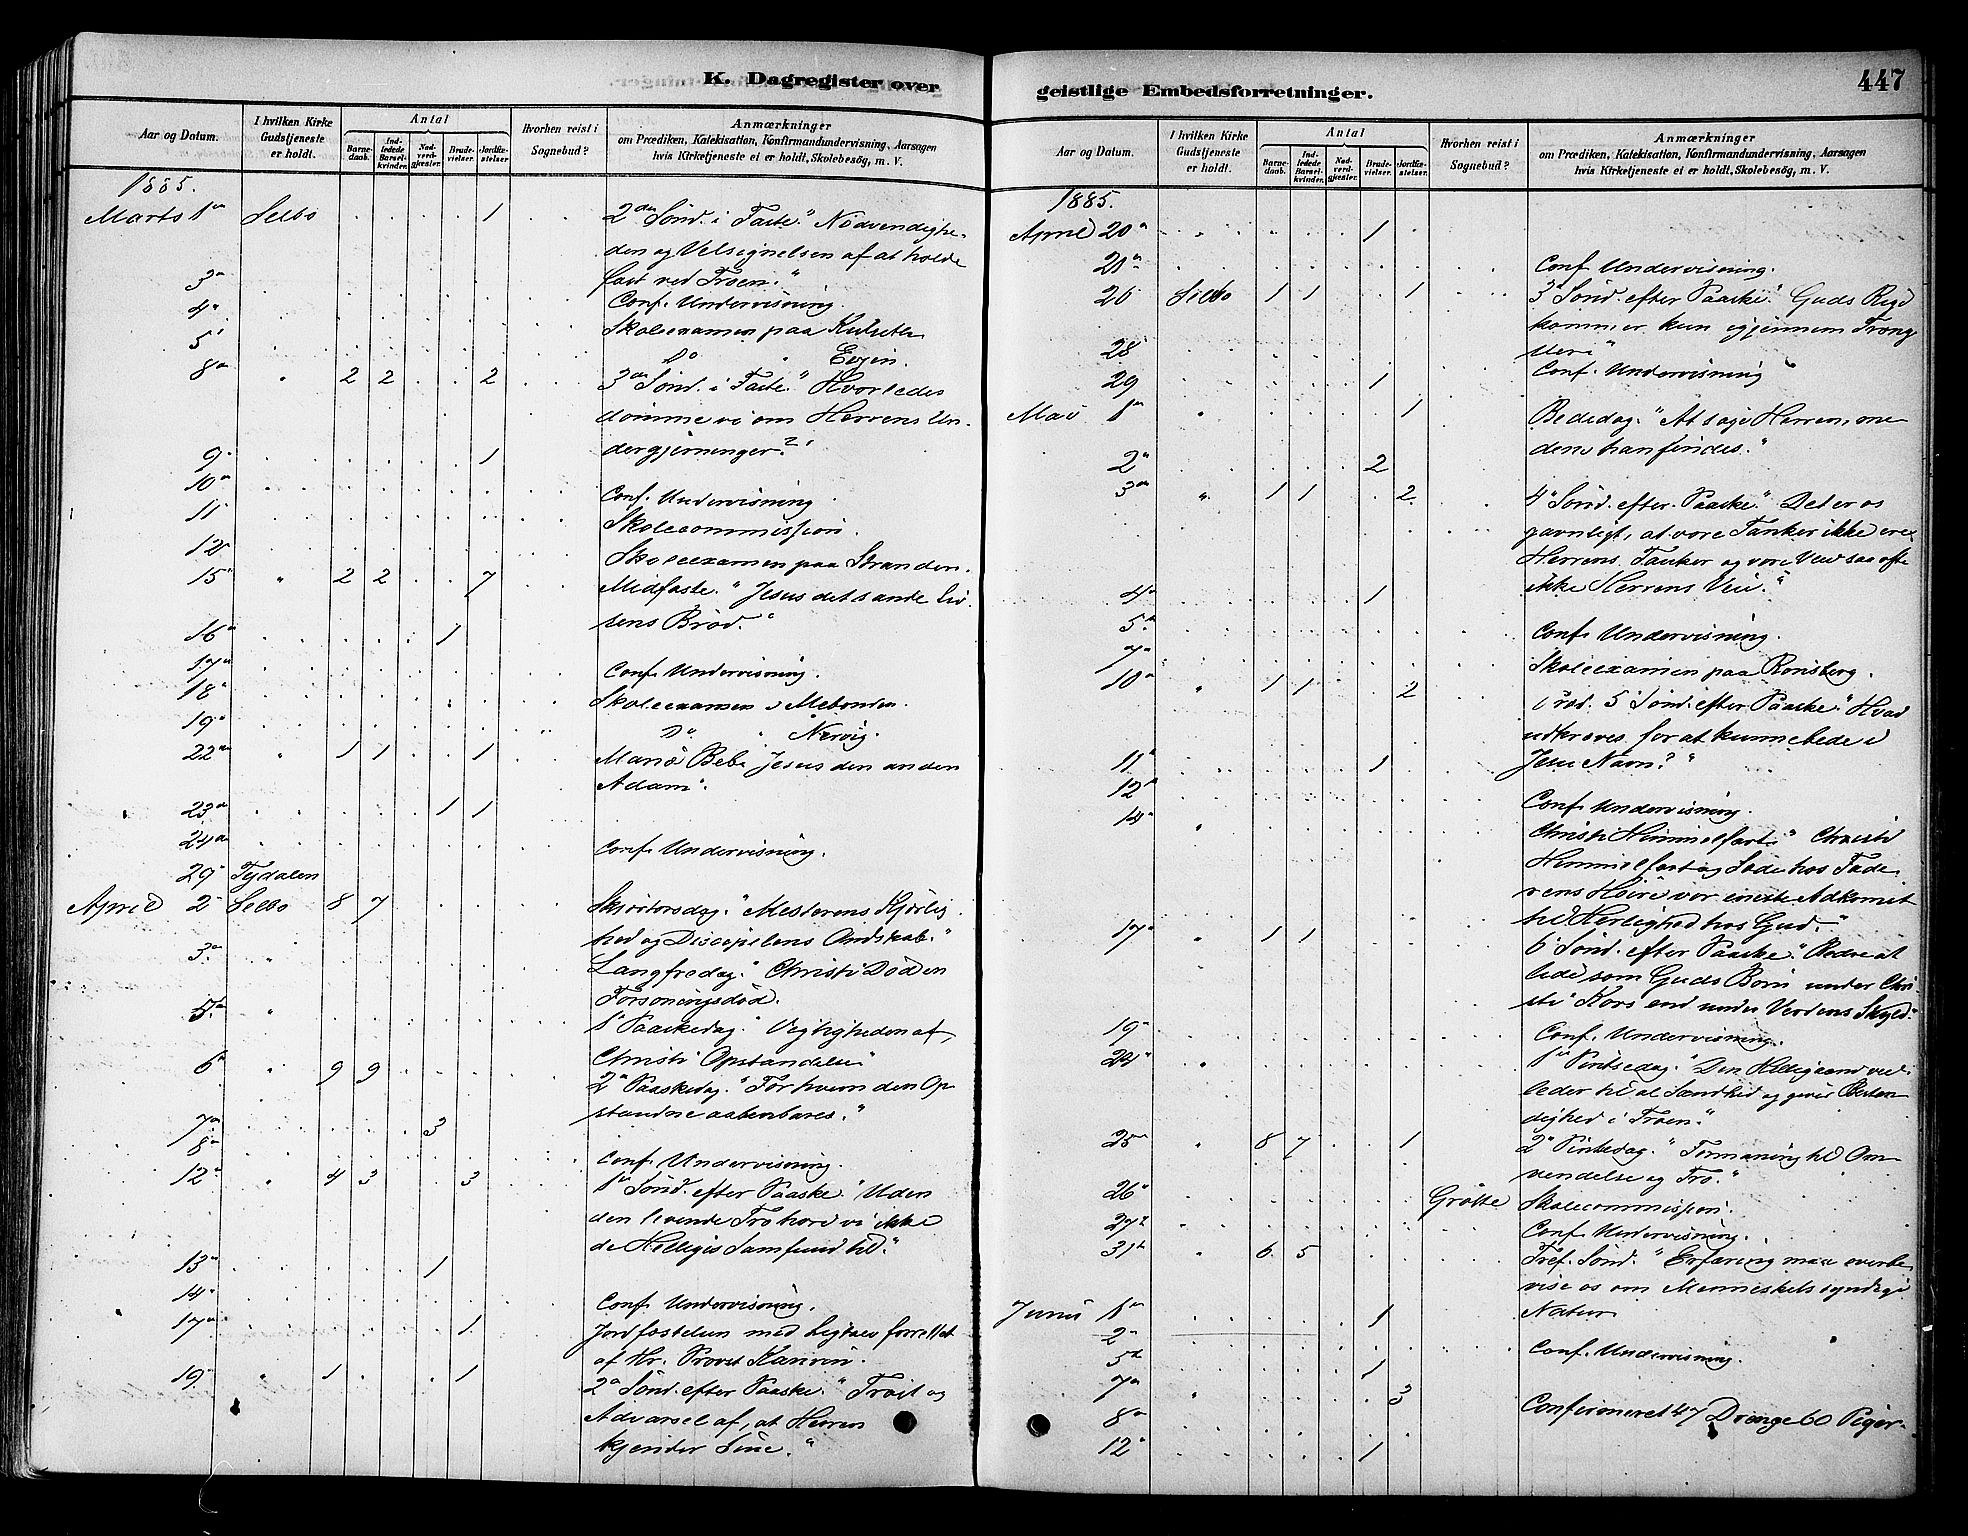 K. Dagregister over
Aar og Datum. I hvilken Kirke Gudstjeneste er holdt. Antal Barnedaab. Indledede Barselkvinder. Nadverdgjester. Brudevielser. Jordfæstelser. Hvorhen reist i Sognebud? Anmærkninger om Prædiken, Katekisation, Konfirmandundervisning, Aarsagen hvis Kirketjeneste ei er holdt, Skolebesög, m. V.
1885.
Marts 1ste Selbo 1 2den Sönd. i Faste. "Nödvendighe-
den og Velsignelsen af at holde
fast ved Troen."
3 Conf. Undervisning
4 Skoleexamen paa Kulseth
5 Do " Evjen.
8 " 2 2 2 3die Sönd. i Faste. "Hvorledes
dömme vi om Herrens Un-
dergjerninger?"
9 1
10 Conf. Undervisning
11 Skolecommission.
12 Skoleexamen paa Stranden.
15 " 2 2 7 Midfaste. "Jesus det sande Liv-
sens Bröd."
16 1
17 Conf. Undervisning.
18 Skoleexamen i Mebonden
19 Do " Nervig.
22 " 1 1 1 Mariæ Beb. Jesus den anden
Adam".
23 1 1
24 Conf. Undervisning.
29 Tydalen
April 2 Selbo 8 7 Skjærtorsdag. "Mesterens Kjærlig-
hed og Disciplens Ondskab."
3 " Langfredag. "Christi Död en
Forsoningsdöd.
5 " 1ste Paaskedag. "Vigtigheden af
Christi Opstandelse"
6 " 9 9 2den Paaskedag. "For hvem den Op-
standne aabenbares."
7 3
8 Conf. Undervisning.
12 " 4 3 3 1ste Sönd. efter Paaske. "Uden
den levende Tro höre vi ikke
de Helliges Samfund til."
13 1
14 Conf. Undervisning.
17 1 Jordfæstelsen med Ligtale forrettet
af Hr. Provst
19 " 1 1 2den Sönd. efter Paaske. "Tröst og
Advarsel af, at Herren
kjender Sine."
geistlige Embedsforretninger. 447
Aar og Datum. I hvilken Kirke Gudstjeneste er holdt. Antal Barnedaab. Indledede Barselkvinder. Nadverdgjester. Brudevielser. Jordfæstelser. Hvorhen reist i Sognebud? Anmærkninger om Prædiken, Katekisation, Konfirmandundervisning, Aarsagen hvis Kirketjeneste ei er holdt, Skolebesög, m. V.
1885.
April 20 1
21 Conf. Undervisning.
26 Selbo 1 1 1 3die Sönd. efter Paaske. "Guds Rige
kommer kun igjennem Træng-
sler"
28 Conf. Undervisning
29 1
Mai 1 " 1 Bededag. "At söge Herren, me-
dens han findes."
2 2
3 " 1 1 2 4de Sönd. efter Paaske. "Det er os
gavnligt, at vore Tanker ikke ere
Herrens Tanker og vore Veie saa ofte
ikke Herrens Veie."
4 1
5 Conf. Undervisning.
7 Skoleexamen paa Rönsberg.
10 " 1 1 2 5 Sönd. efter Paaske. "Hvad
udkræves for at kunne bede i
Jesu Navn?"
11 1
12 Conf. Undervisning.
14 " Christi Himmelfart. "Christi
Himmelfart og Sæde hos Fade-
rens Höire vor eneste Adkomst
til Herlighed hos Gud."
17 " 1 1 6 Sönd. efter Paaske. "Bedre at
lide som Guds Börn under Chri-
sti Kors end under Verdens Skyld."
19 Conf. Undervisning.
24 " 1ste Pintsedag. "Den Helligaand vei-
leder til al Sandhed og giver Bestan-
dighed i Troen."
25 " 8 7 1 2den Pintsedag. "Formaning til Om-
vendelse og Tro."
26 Grötte Skolecommission.
27 Conf. Undervisning.
31 " 6 5 Tref. Sönd. "Erfaring maa overbe-
vise os om Menneskets syndige
Natur
Juni 1 1
2 Conf. Undervisning.
5 1
7 " 3
8 Confirmeret 47 Drenge 60 Piger.
12 1